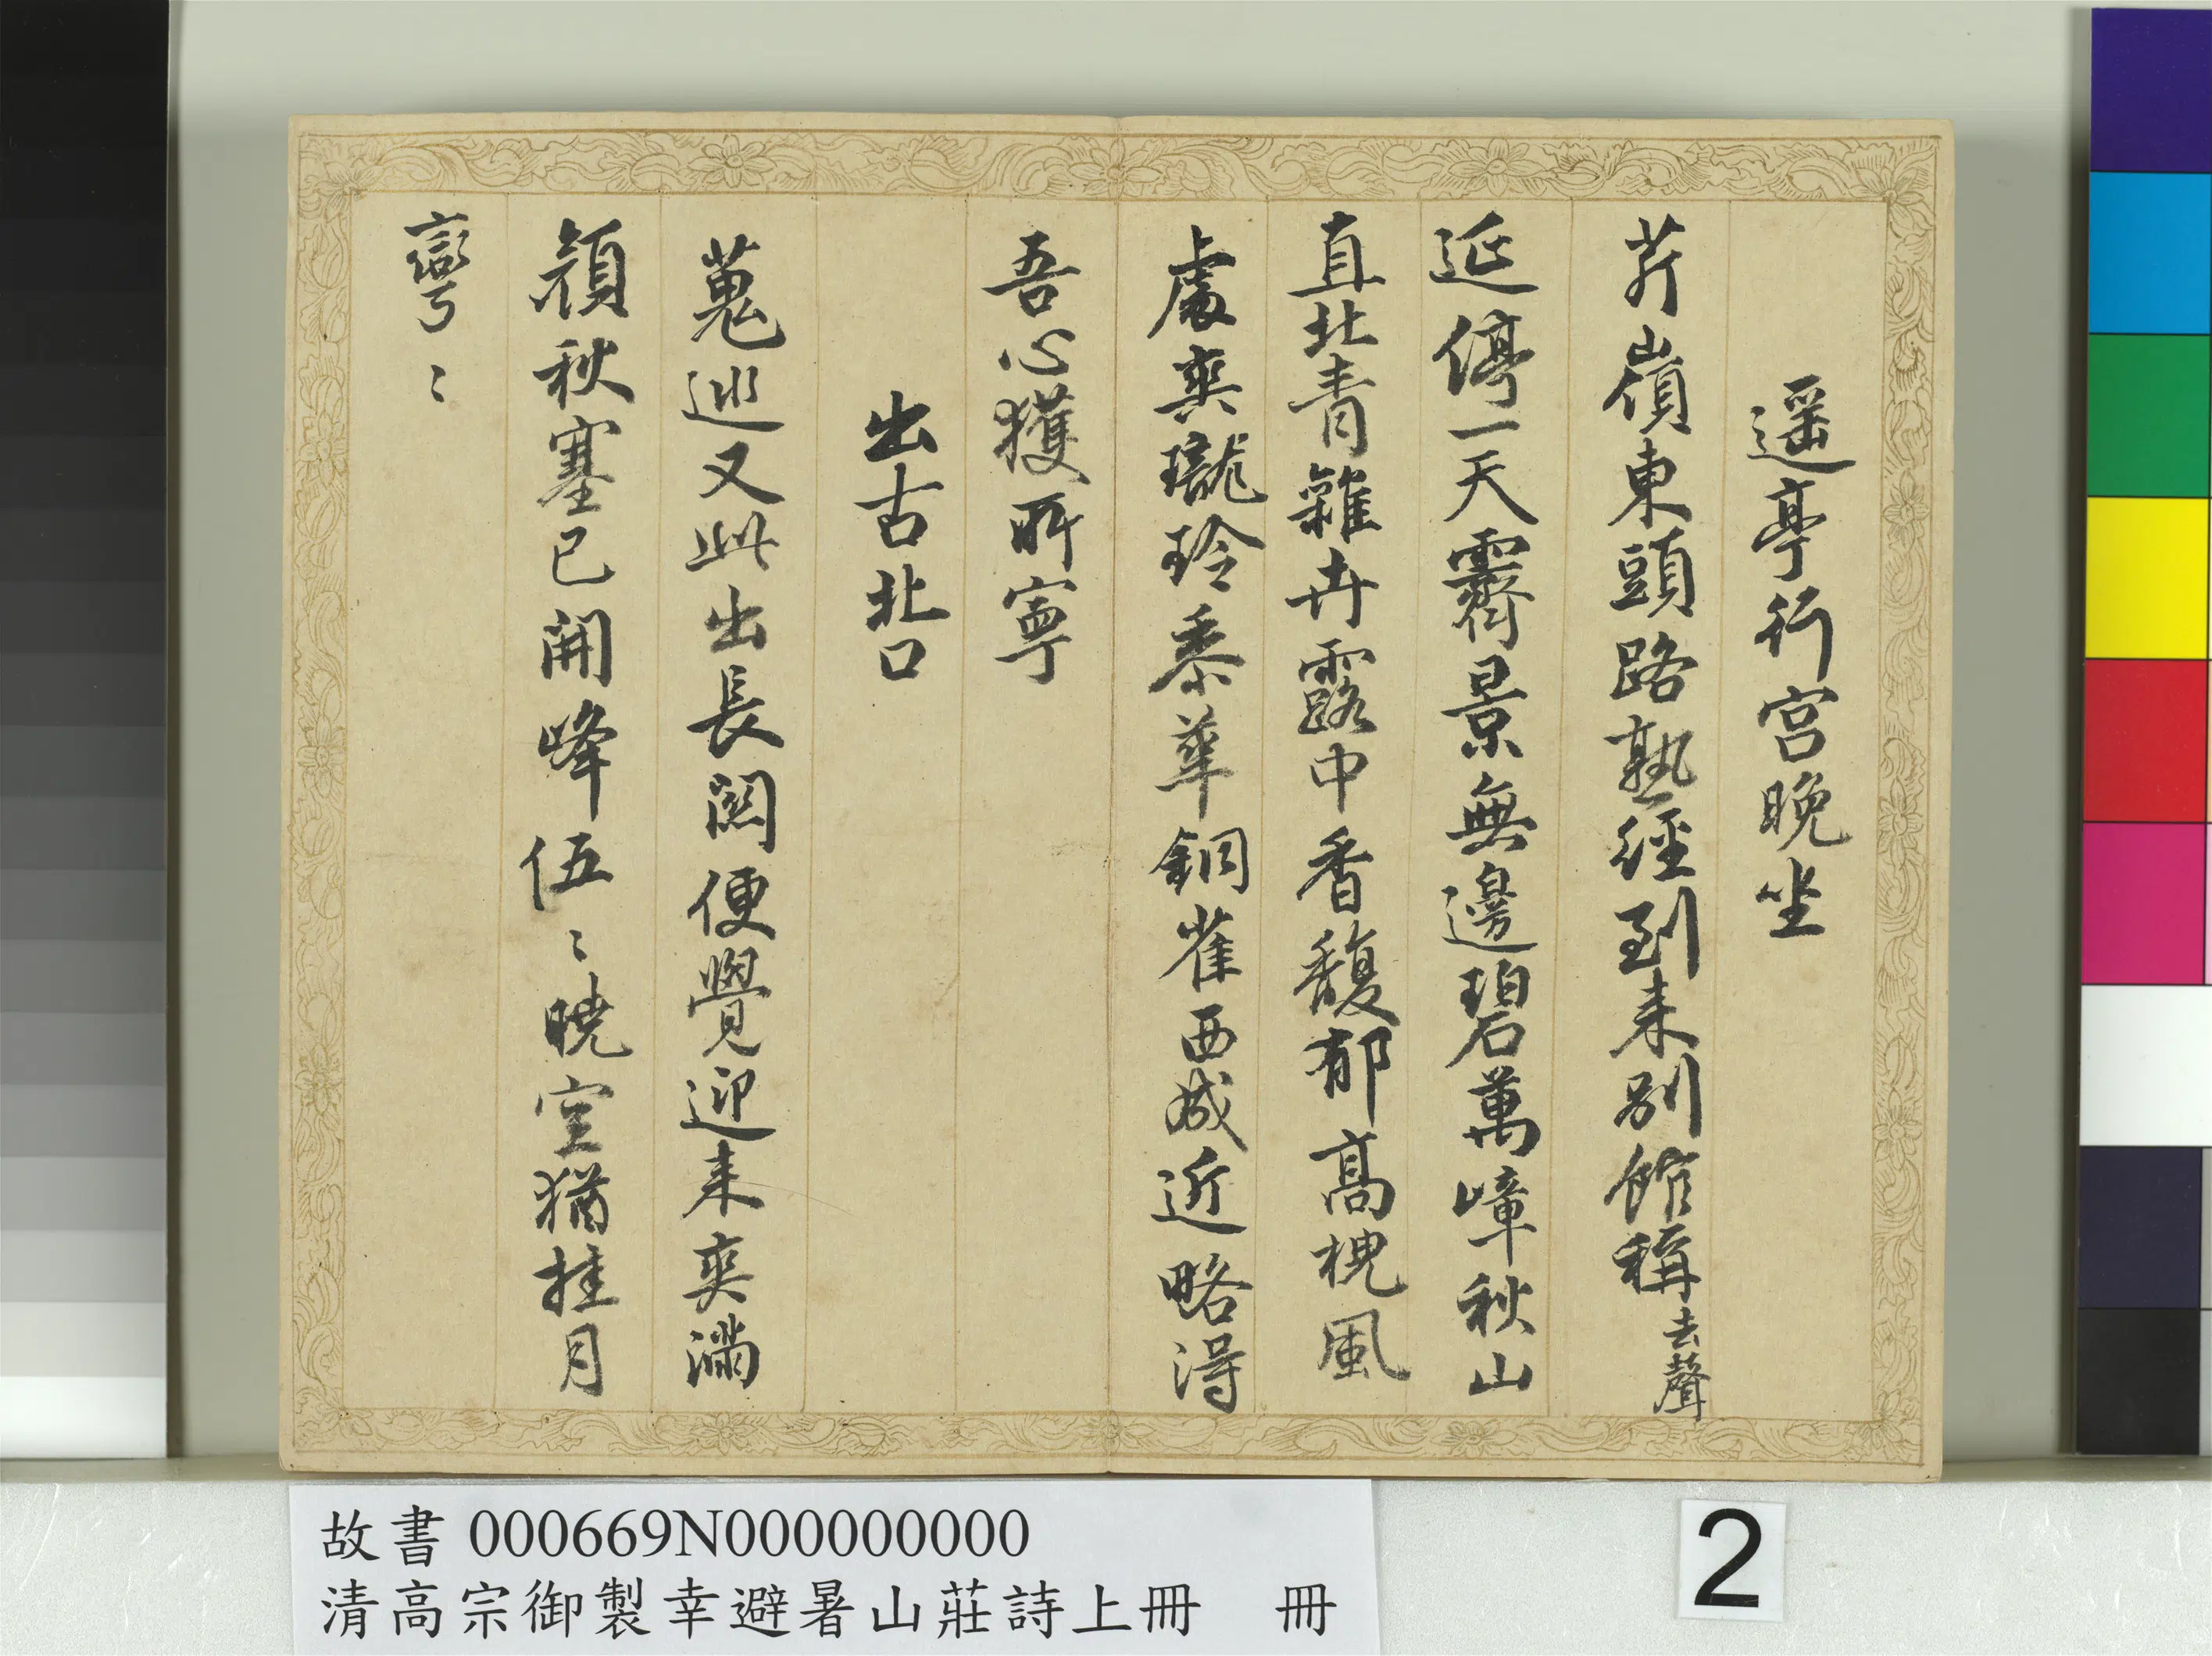 遥亭行宮晚坐
芹嶺東頭路熟經到来別館稱去聲
延停一天霽景無邊碧萬嶂秋山
直北青雜卉露中香馥郁高槐風
處爽瓏玲黍華銅雀西成近略得
吾心獲所寧
出古北口
蒐巡又此出長関便覺迎来爽滿
顏秋塞已開峰伍〻曉空猶挂月
彎〻
故書 000669N000000000
清高宗御製幸避暑山莊詩上冊 冊
2